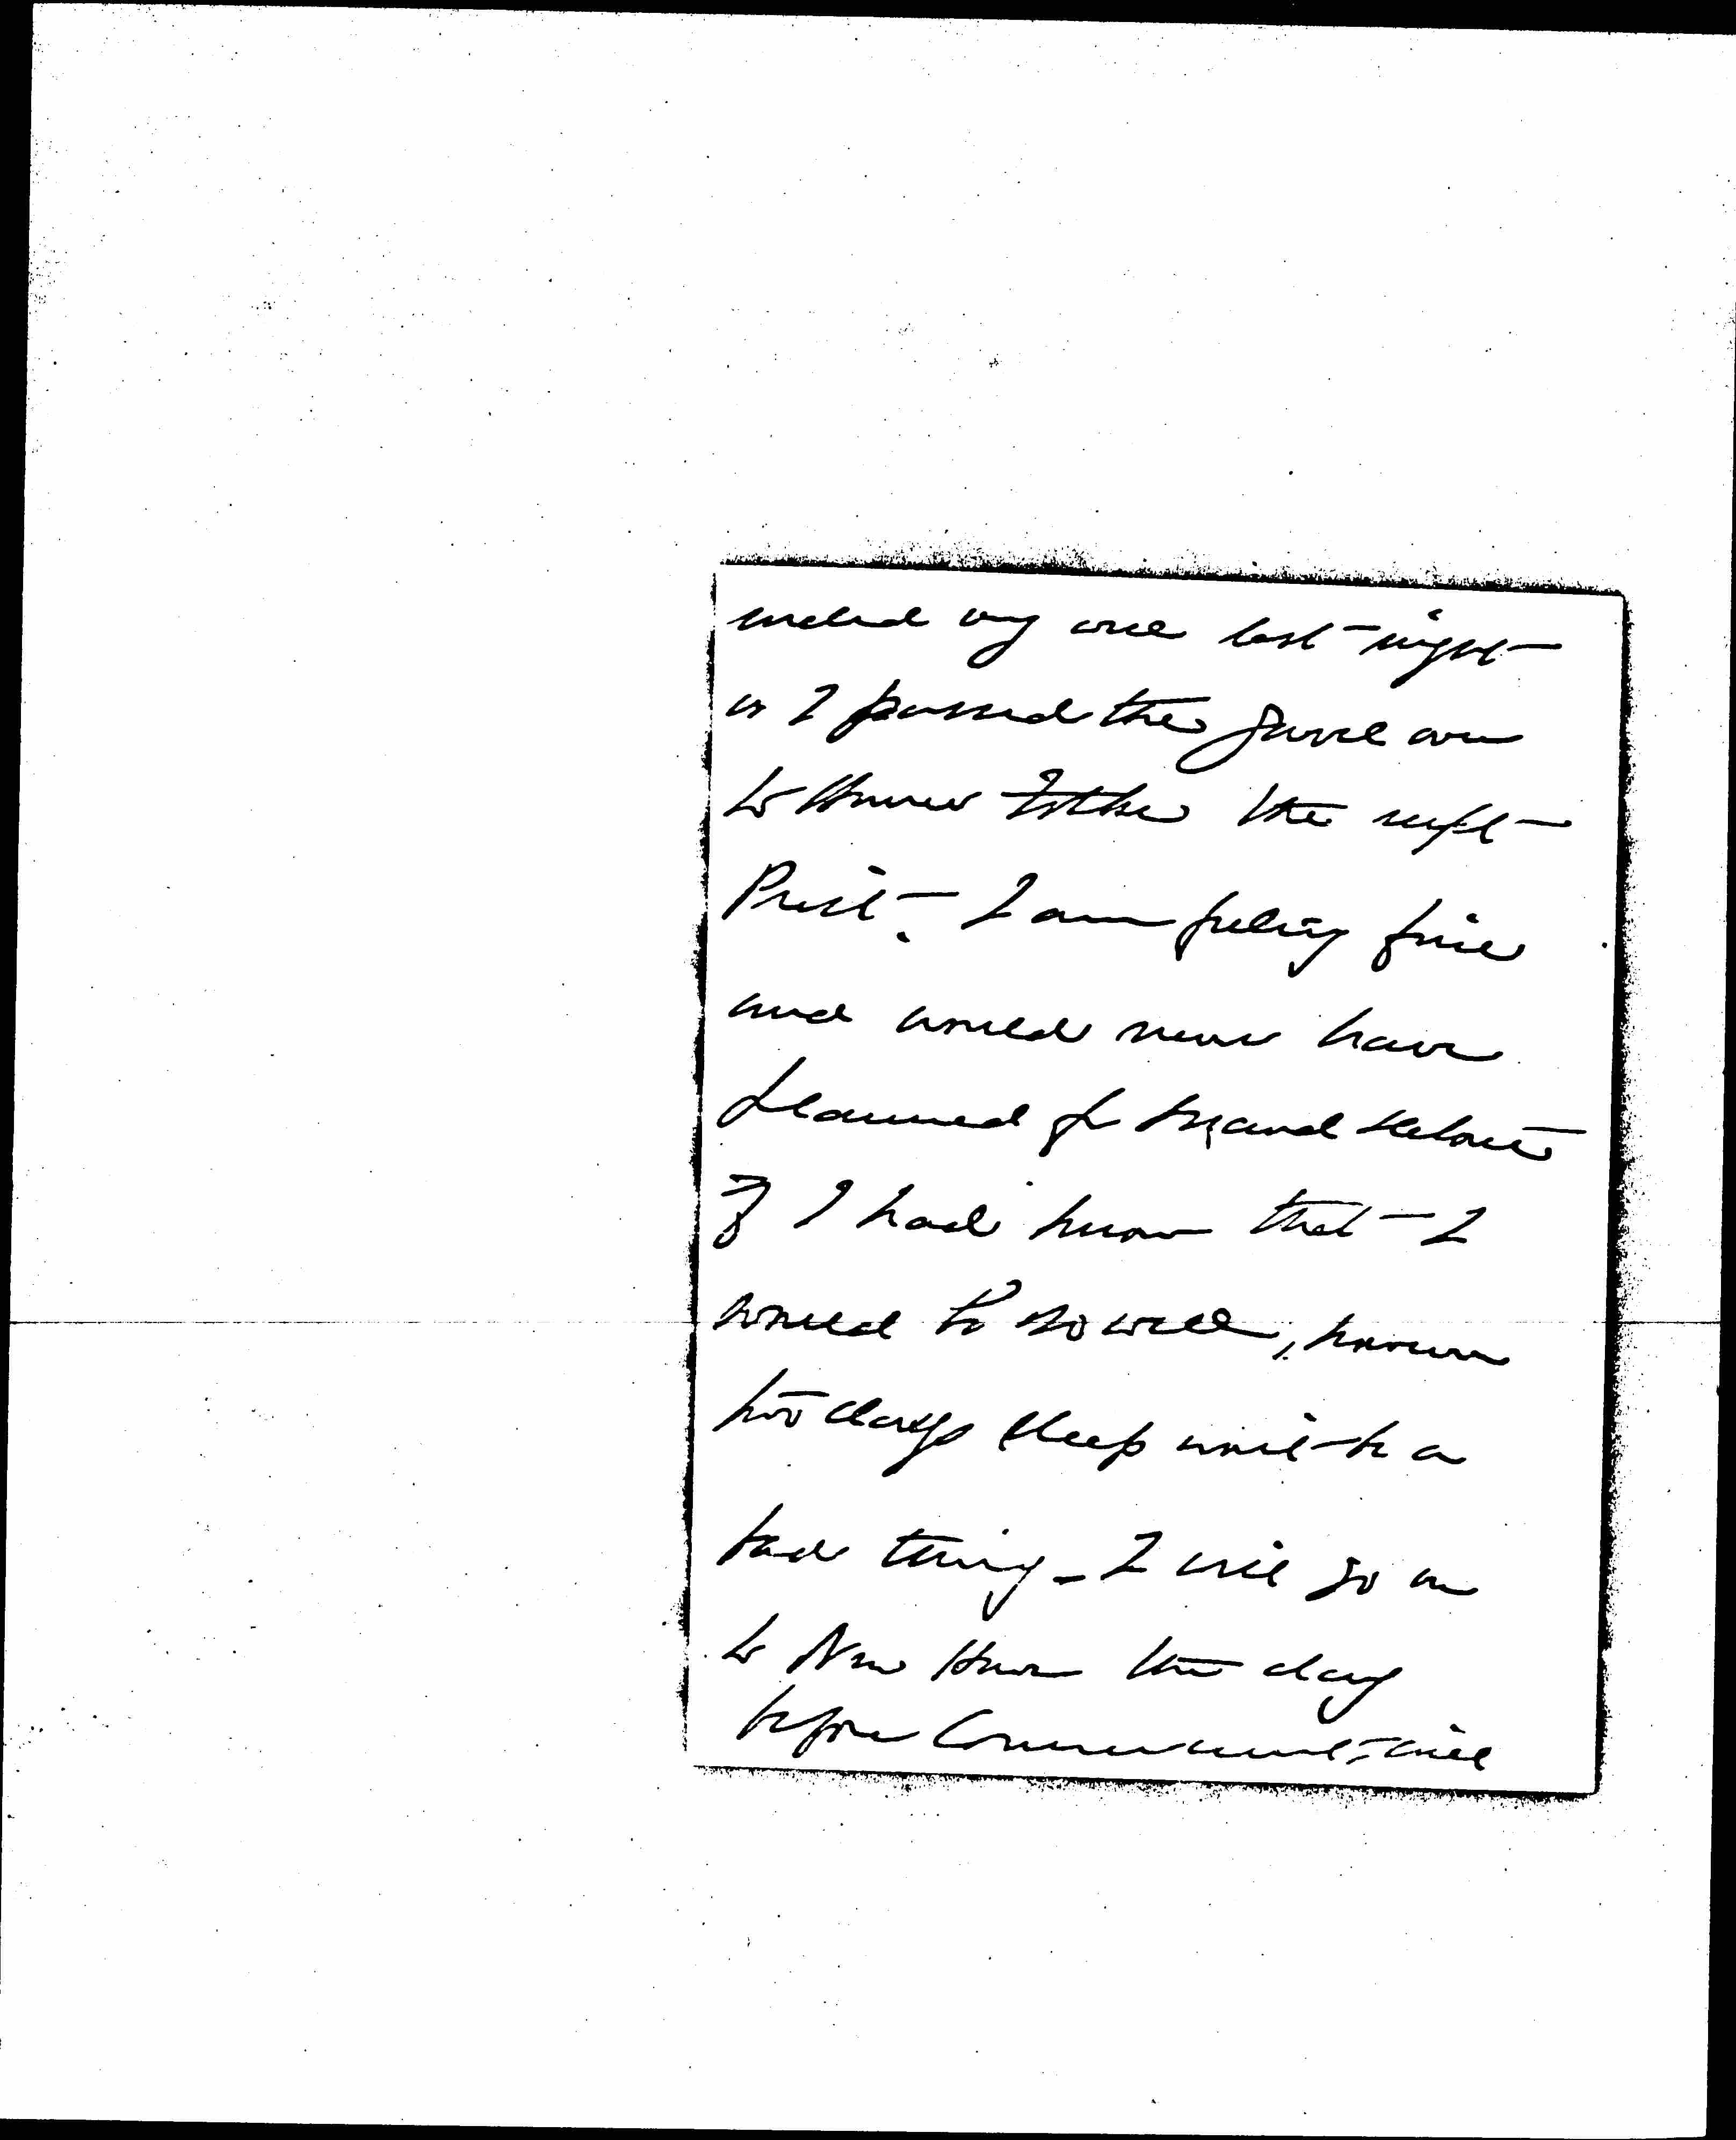 ended very well last night
as I passed the gavel over
to Homer Tother the next
Prest. I am feeling fine
and would never have
planned for Maud
if I had known that I
would be so well, however
two days sleep wont be a
bad thing - I will go on
to New Haven the day
before Commencement, will